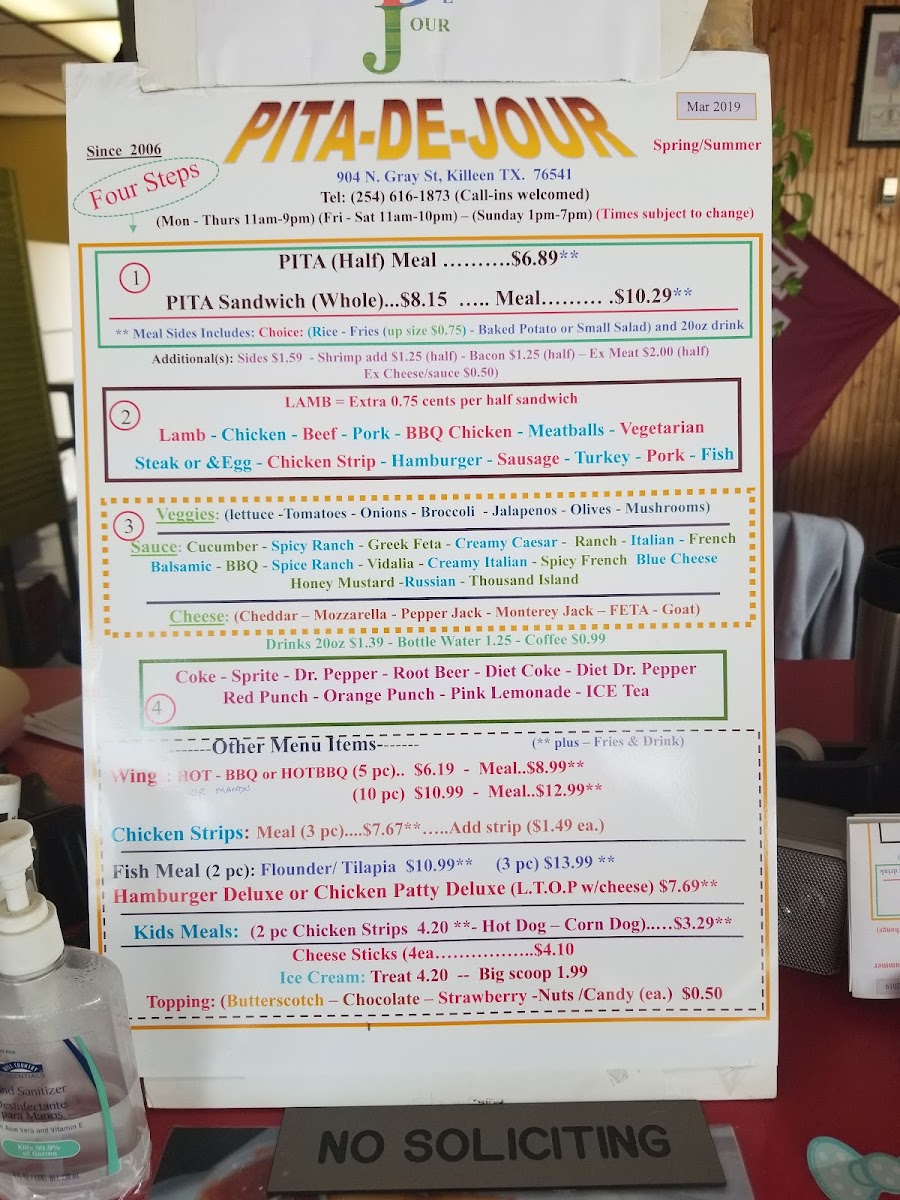 J OUR
PITA-DE-JOUR
Mar 2019
Since 2006
Spring/Summer
Four Steps
904 N. Gray St, Killeen TX. 76541
Tel: (254) 616-1873 (Call-ins welcomed)
(Mon - Thurs 11am-9pm) (Fri - Sat 11am-10pm) – (Sunday 1pm-7pm) (Times subject to change)
1
PITA (Half) Meal ……….$6.89**
PITA Sandwich (Whole)...$8.15 ….. Meal……… .$10.29**
** Meal Sides Includes: Choice: (Rice - Fries (up size $0.75) - Baked Potato or Small Salad) and 20oz drink
Additional(s): Sides $1.59 - Shrimp add $1.25 (half) - Bacon $1.25 (half) – Ex Meat $2.00 (half)
Ex Cheese/sauce $0.50)
2
LAMB = Extra 0.75 cents per half sandwich
Lamb - Chicken - Beef - Pork - BBQ Chicken - Meatballs - Vegetarian
Steak or &Egg - Chicken Strip - Hamburger - Sausage - Turkey - Pork - Fish
3
Veggies: (lettuce -Tomatoes - Onions - Broccoli - Jalapenos - Olives - Mushrooms)
Sauce: Cucumber - Spicy Ranch - Greek Feta - Creamy Caesar - Ranch - Italian - French
Balsamic - BBQ - Spice Ranch - Vidalia - Creamy Italian - Spicy French Blue Cheese
Honey Mustard -Russian - Thousand Island
Cheese: (Cheddar – Mozzarella - Pepper Jack - Monterey Jack – FETA - Goat)
Drinks 20oz $1.39 - Bottle Water 1.25 - Coffee $0.99
Coke - Sprite - Dr. Pepper - Root Beer - Diet Coke - Diet Dr. Pepper
Red Punch - Orange Punch - Pink Lemonade - ICE Tea
4
-------Other Menu Items-------
(** plus – Fries & Drink)
Wing : HOT - BBQ or HOTBBQ (5 pc).. $6.19 - Meal..$8.99**
(10 pc) $10.99 - Meal..$12.99**
Chicken Strips: Meal (3 pc)....$7.67**…..Add strip ($1.49 ea.)
Fish Meal (2 pc): Flounder/ Tilapia $10.99** (3 pc) $13.99 **
Hamburger Deluxe or Chicken Patty Deluxe (L.T.O.P w/cheese) $7.69**
Kids Meals: (2 pc Chicken Strips 4.20 **- Hot Dog – Corn Dog)..…$3.29**
Cheese Sticks (4ea………………..$4.10
Ice Cream: Treat 4.20 -- Big scoop 1.99
Topping: (Butterscotch – Chocolate – Strawberry -Nuts /Candy (ea.) $0.50
HILL COUNTRY
nd Sanitizer
Desinfectante
para Manos
Aloe Vera and Vitamin E
Kills 99.9%
of Germs
NO SOLICITING